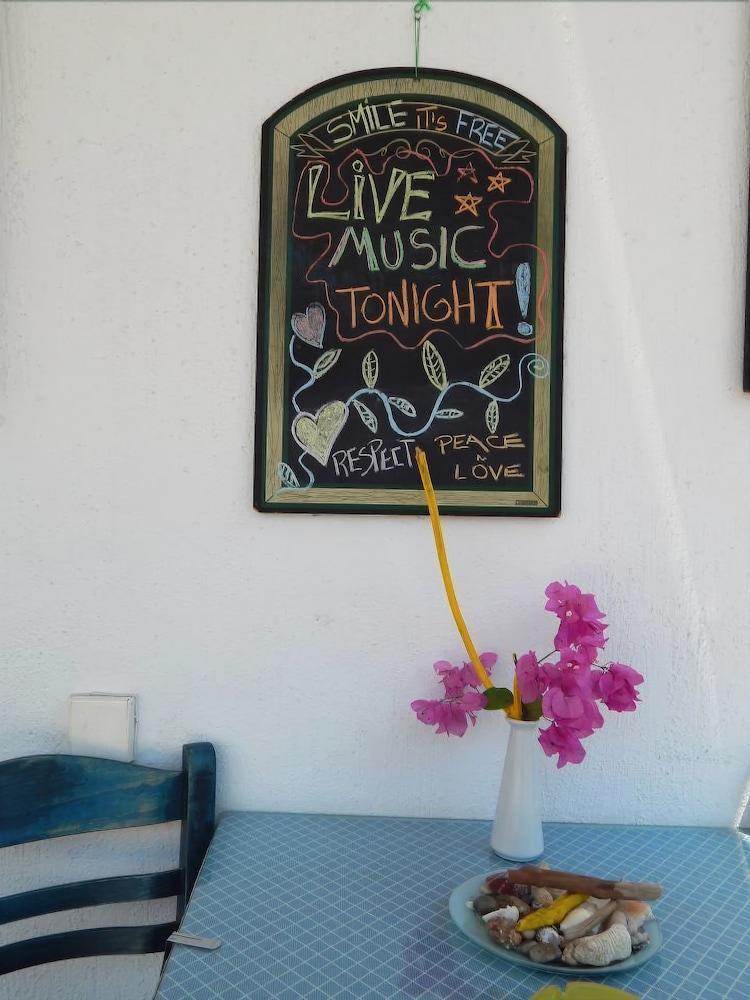 SMILE iT's FREE
LiVE
MUSIC
TONIGHT!
RESPECT PEACE
N
LOVE